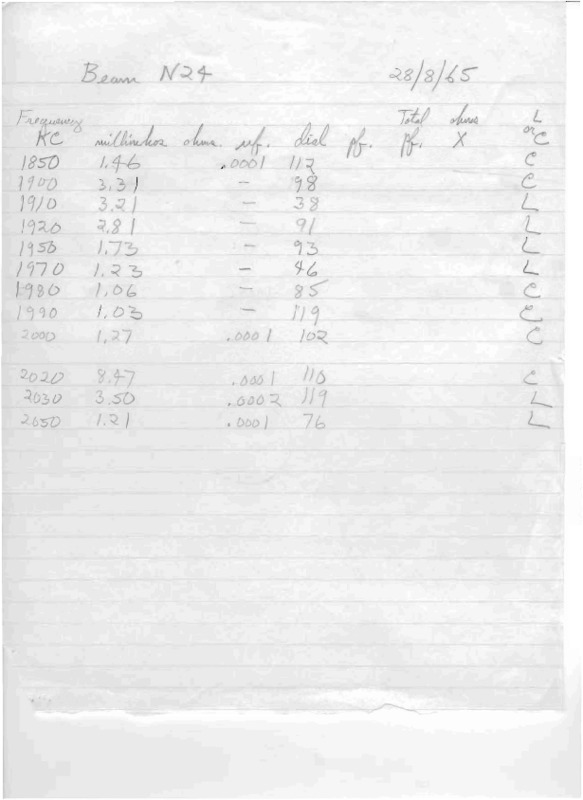 Beam N24 28/8/65
Frequency Total ohms L
KC millimhos ohms. uf. dial pf. pf. X or C
1850 1.46 .0001 112 C
1900 3.31 – 98 C
1910 3.21 – 38 L
1920 2.81 – 91 L
1950 1.73 – 93 L
1970 1.23 – 46 L
1980 1.06 – 85 C
1990 1.03 – 119 C
2000 1.27 .0001 102 C
2020 8.47 .0001 110 C
2030 3.50 .0002 119 L
2050 1.21 .0001 76 L